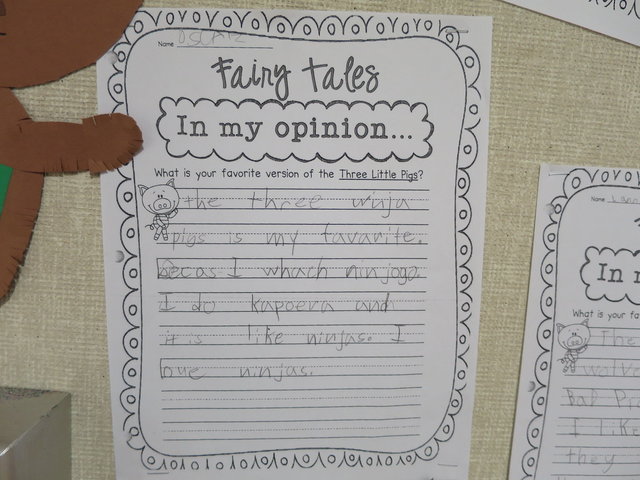 Name
Fairy Tales
In my opinion...
What is your favorite version of the Three Little Pigs?
the three winja
pigs is my favarite.
Becas I whach ninjogo.
I do kapoera and
it is like ninjas. I
love ninjas.
Name
In
What is your fa
The
wolve
Bad
I like
they